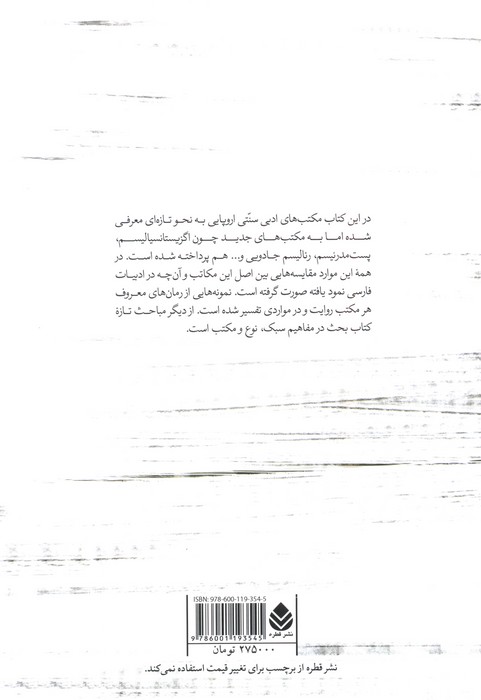 در این کتاب مکتب‌های ادبی سنّتی اروپایی به نحو تازه‌ای معرفی
شده اما به مکتب‌های جدید چون اگزیستانسیالیسم،
پست‌مدرنیسم، رئالیسم جادویی و... هم پرداخته شده است. در
همهٔ این موارد مقایسه‌هایی بین اصل این مکاتب و آن‌چه در ادبیات
فارسی نمود یافته صورت گرفته است. نمونه‌هایی از رمان‌های معروف
هر مکتب روایت و در مواردی تفسیر شده است. از دیگر مباحث تازهٔ
کتاب بحث در مفاهیم سبک، نوع و مکتب است.
ISBN: 978-600-119-354-5
9786001193545
نشر قطره
۲۷۵۰۰۰ تومان
نشر قطره از برچسب برای تغییر قیمت استفاده نمی‌کند.